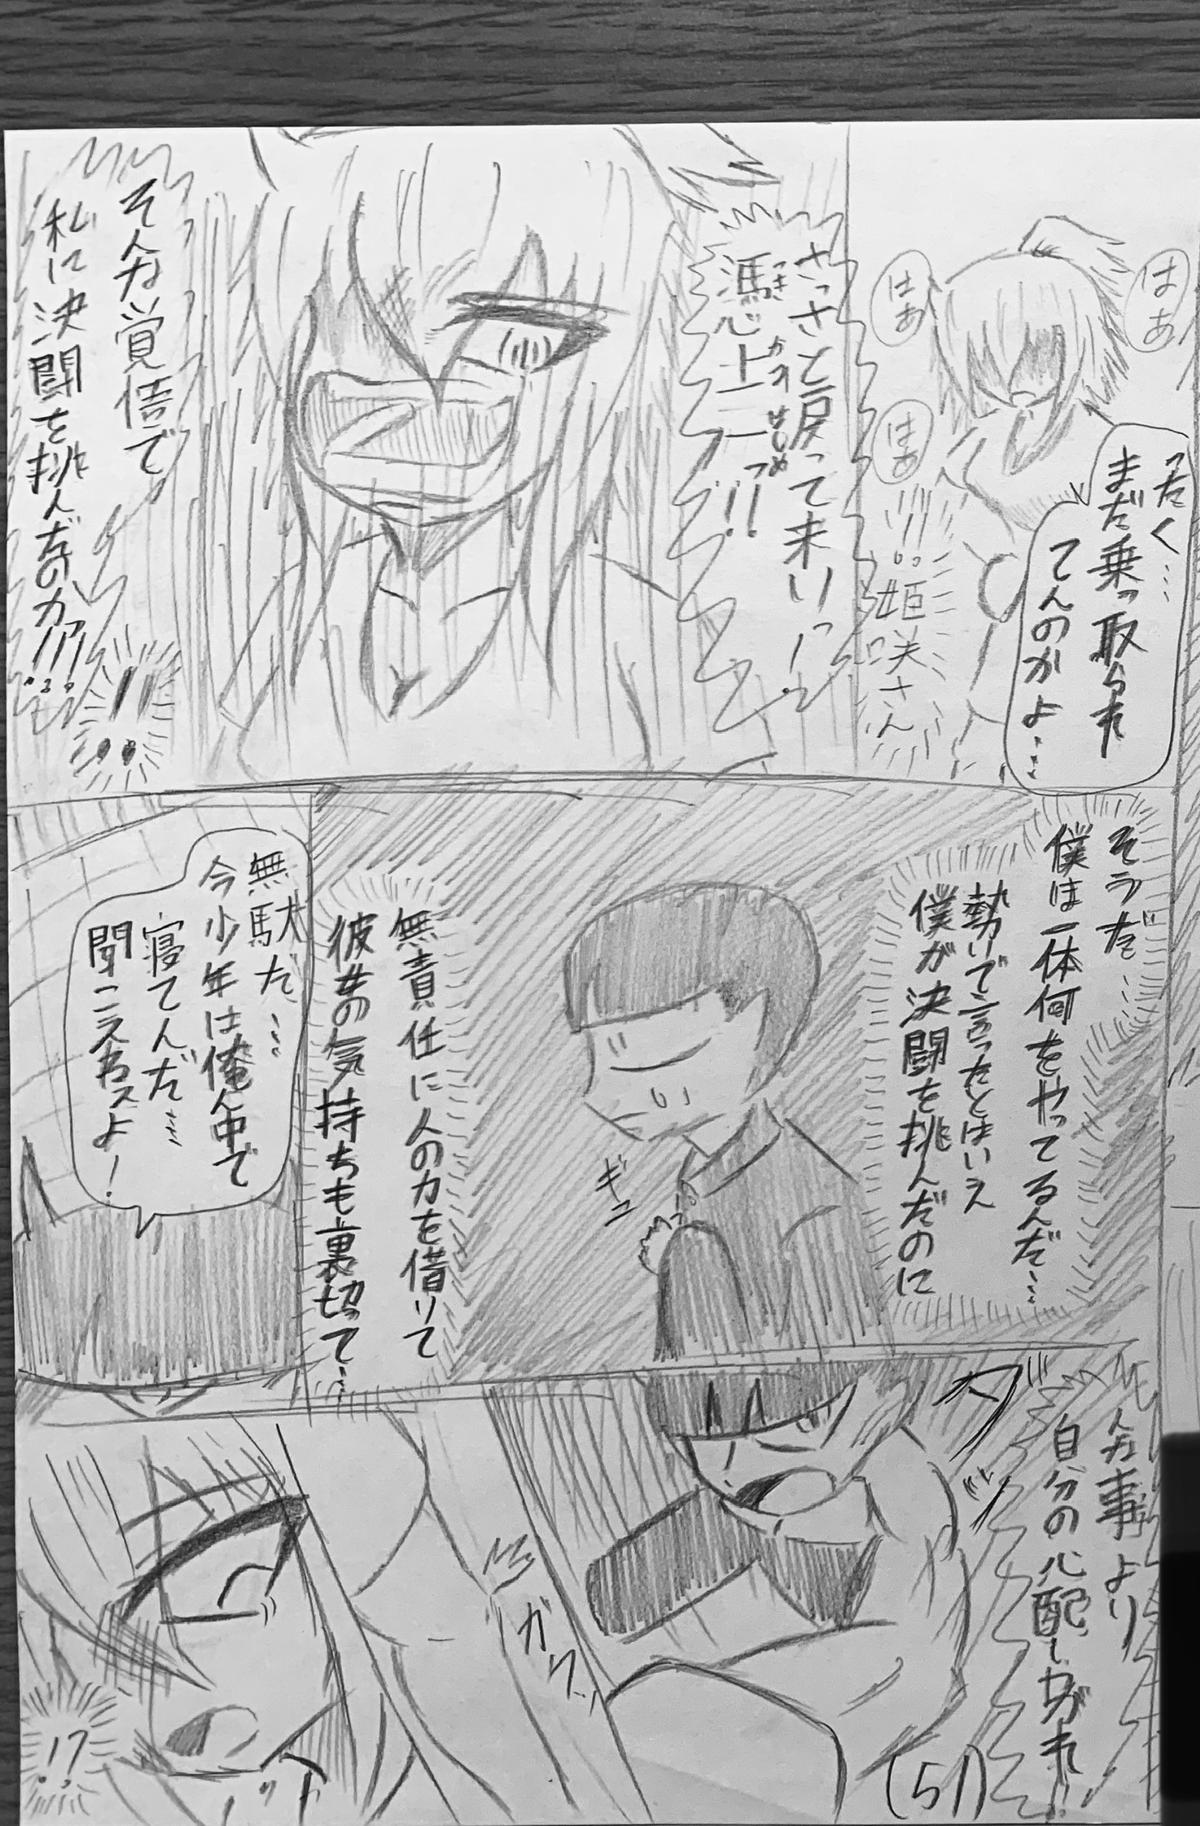 はあ
はあ
はあ
ったく…
まだ乗っ取られ
てんのかよ…
!!
姫咲さん
さっさと戻って来いっ!
憑かれはじめ
そんな覚悟で
私に決闘を挑んだのかっ!!!
!!
そうだ…
僕は一体何をやってるんだ…
勢いで言ったとはいえ
僕が決闘を挑んだのに
ギュ
無責任に人の力を借りて
彼女の気持ちも裏切って…
無駄だ…
今少年は俺ん中で
寝てんだ…
聞こえねえよ!
んな事より
自分の心配しやがれ
ガッ
!?
(51)